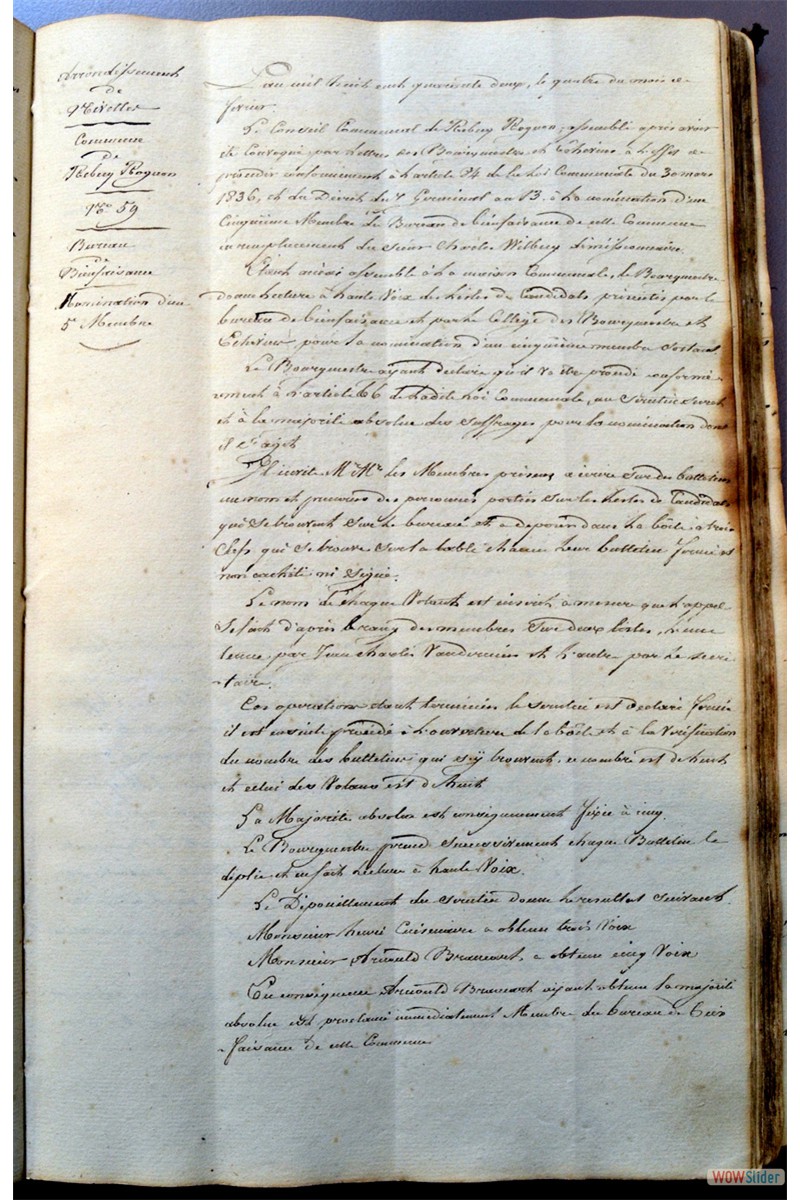 Arrondissement
de
Nivelles
Commune
de
Rebecq Rognon
N° 59
Bureau
de
Bienfaisance
Nomination d'un
5e Membre
L'an mil huit cent quarante deux, le quatre du mois de
fevrier.
Le Conseil Communal de Rebecq Rognon, assemblé après avoir
été Convoqué par Lettre des Bourgmestre et Echevins à l'effet de
procéder conformément à l'article 84 de la Loi Communale du 30 mars
1836, et du Décret du 7 Germinal an 13. à la nomination d'un
Cinquième Membre du Bureau de bienfaisance de cette Commune
en remplacement du Sieur Charles Wilbecq démissionnaire.
Etant ainsi assemblé à la maison Communale, le Bourgmestre
donne lecture à haute Voix des listes de Candidats présentés par le
bureau de bienfaisance et par le Collège des Bourgmestre et
Echevins pour la nomination d'un cinquième membre sortant
Le Bourgmestre ayant declaré qu'il va être procédé conformé
-ment à l'article 66 de ladite Loi Communale, au Scrutin secret
et à la majorité absolue des suffrages pour la nomination dont
il s'agit
Il invite M.rs les Membres présens, à écrire sur des bulletins
un nom et prenoms des personnes portées sur les listes de Candidats
qui se trouvent sur le bureau et a deposer dans la boîte à trois
clefs qui se trouve sur la table chacun leur bulletin fermé et
non cacheté ni signé.
Le nom de chaque Votant est inscrit, à mesure que l'appel
se fait d'après le rang des membres sur deux listes, l'une
tenue par Jean Charles et l'autre par le secré
-taire.
Ces operations étant terminées le scrutin est déclaré fermé
il est ensuite procédé à l'ouverture de la boîte et à la Vérification
du nombre des bulletins qui s'y trouvent, ce nombre est de huit
et celui des Votans est de huit
La Majorité absolue est conséquemment fixée à cinq.
Le Bourgmestre prend successivement chaque Bulletin le
déplie et en fait lecture à haute Voix.
Le Dépouillement du scrutin donne le resultat suivant.
Monsieur henri a obtenu trois Voix
Monsieur Arnould Brancart, a obtenu cinq Voix
En conséquence Arnould Brancart ayant obtenu la majorité
absolue est proclamé immédiatement Membre du bureau de bien
-faisance de cette Commune
WOWSlider